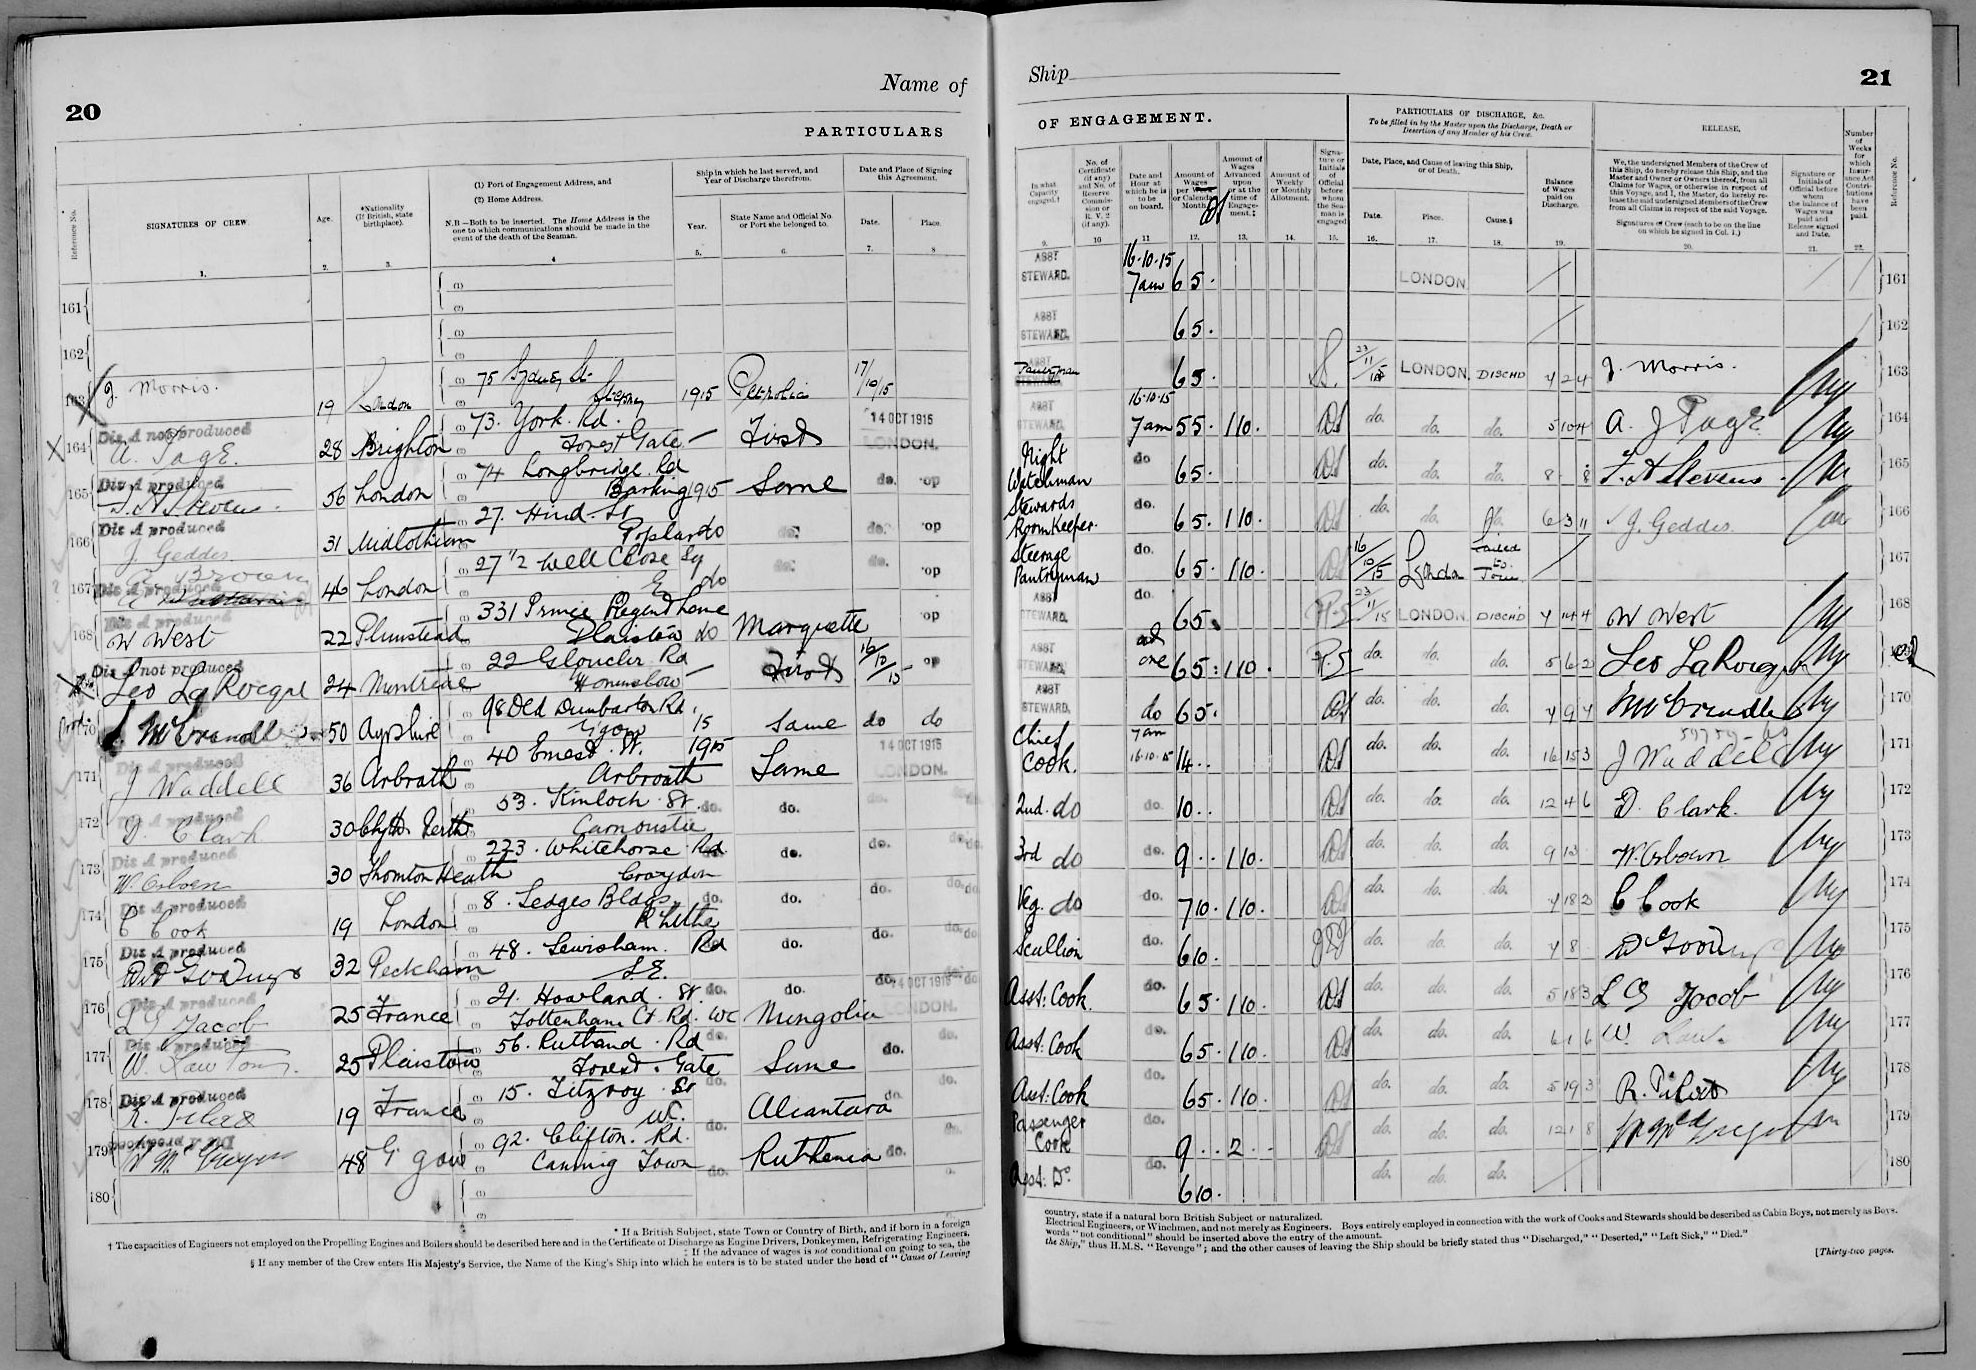 Name of
20
PARTICULARS
Reference No.
SIGNATURES OF CREW
Age.
*Nationality (If British, state birthplace).
(1) Port of Engagement Address, and
(2) Home Address.
N.B—Both to be inserted. The Home Address is the one to which communications should be made in the event of the death of the Seaman.
Ship in which he last served, and Year of Discharge therefrom.
Year.
State Name and Official No. or Port she belonged to.
Date and Place of Signing this Agreement.
Date.
Place.
1. 2. 3. 4 5. 6. 7. 8
161 (1)
(2)
162 (1)
(2)
163 J. Morris. 19 London (1) 75 Sydney St. Stepney 1915 17/10/15
164 Dis A not produced
A. Page. 28 Brighton 73. York. Rd. Forest Gate — First 14 OCT 1915 LONDON.
165 Dis A produced
F. A Stevens. 56 London 74 Longbridge. Rd Barking 1915 Same do.
166 Dis A produced
J. Geddes 31 Midlothian 27. Hind. St Poplar do do. do.
167 Dis A produced
Brown 46 London 27 1/2 Well Close Sq E. do do. do.
168 Dis A produced
W West 22 Plumstead 331 Prince Regent Lane Plaistow do Marquette
Dis A not produced
Leo LaRocque 24 Montreal 22 Gloucester Rd Hounslow — First 16/10/15
170 McCrindle 50 Ayrshire 98 Old Dumbarton Rd. Glasgow 15 Same do do
171 Dis A produced
J Waddell 36 Arbroath 40 Ernest. St. Arbroath 1915 Same 14 OCT 1915 LONDON.
172 Dis A produced
D. Clark 30 Perth 53. Kinloch. St. Carnoustie do. do. do. do.
173 Dis A produced
W. Osborn 30 Thornton Heath 223. Whitehorse Rd Croydon do. do. do. do.
174 Dis A produced
C Cook 19 London 8. Sedges Bldgs. R'hithe do. do. do. do.
175 Dis A produced
32 Peckham 48. Lewisham. Rd S.E. do. do. do.
176 Dis A produced
L G Jacob 25 France 21. Howland. St. Tottenham Ct. Rd. WC do. Mongolia do. 14 OCT 1915 LONDON.
177 Dis A produced
W. Lawton. 25 Plaistow 56. Rutland. Rd Forest. Gate do. Same do. do.
178 Dis A produced
R. Pilat 19 France 15. Fitzroy. St WC. do. Alcantara do. do.
179 Dis A produced
W McGregor 48 92. Clifton. Rd. Canning Town do. Ruthenia do. do.
180 (1)
(2)
* If a British Subject, state Town or Country of Birth, and if born in a foreign
† The capacities of Engineers not employed on the Propelling Engines and Boilers should be described here and in the Certificate of Discharge as Engine Drivers, Donkeymen, Refrigerating Engineers,
‡ If the advance of wages is not conditional on going to sea, the
§ If any member of the Crew enters His Majesty's Service, the Name of the King's Ship into which he enters is to be stated under the head of "Cause of Leaving
Ship
21
OF ENGAGEMENT.
PARTICULARS OF DISCHARGE, &c.
To be filled in by the Master upon the Discharge, Death or Desertion of any Member of his Crew.
RELEASE.
In what Capacity engaged.†
No. of Certificate (if any) and No. of Reserve Commission or R. V. 2 (if any).
Date and Hour at which he is to be on board.
Amount of Wages per Week or Calendar Month.
Amount of Wages Advanced upon or at the time of Engagement.‡
Amount of Weekly or Monthly Allotment.
Signature or Initials of Official before whom the Seaman is engaged
Date, Place, and Cause of leaving this Ship, or of Death.
Date.
Place.
Cause.§
Balance of Wages paid on Discharge.
We, the undersigned Members of the Crew of this Ship, do hereby release this Ship, and the Master and Owner or Owners thereof, from all Claims for Wages, or otherwise in respect of this Voyage, and I, the Master, do hereby release the said undersigned Members of the Crew from all Claims in respect of the said Voyage.
Signatures of Crew (each to be on the line on which he signed in Col. 1.)
Signature or Initials of Official before whom the balance of Wages was paid and Release signed and Date.
Number of Weeks for which Insurance Act Contributions have been paid.
Reference No.
9. 10 11 12. 13. 14. 15. 16. 17. 18. 19. 20. 21. 22.
ASST STEWARD. 16.10.15 7am 65. LONDON 161
ASST STEWARD. 65. 162
ASST STEWARD. Pantryman 65. 23/11/15 LONDON, DISCHD 4 2 4 J. Morris. 163
ASST STEWARD. 16.10.15 7am 55. 110. do. do. do. 5 10 4 A. J Page 164
Night Watchman do 65. do. do. do. 8 - 8 F. A Stevens. 165
Stewards Room Keeper. do. 65. 110. do. do. do. 6 3 11 J. Geddes. 166
Steerage Pantryman do. 65. 110. 16/10/15 London Failed to Join 167
ASST STEWARD. do. 65. 23/11/15 LONDON DISCHD 4 14 4 W West 168
ASST STEWARD. at one 65: 110. do. do. do. 5 6 2 Leo LaRocque
ASST STEWARD. do 65. do. do. do. McCrindle 170
Chief Cook. 7am 16.10.15 14.. do. do. do. 16 15 3 J Waddell 171
2nd. do do. 10.. do. do. do. 12 4 6 D. Clark. 172
3rd do do. 9.. 110. do. do. do. 9 13 W. Osborn 173
Veg. do do. 710. 110. do. do. do. C Cook 174
Scullion do. 610. do. do. do. 4 8 175
Asst: Cook. do. 65. 110. do. do. do. 5 18 3 L G Jacob 176
Asst: Cook do. 65. 110. do. do. do. 6 1 6 W. 177
Asst: Cook do. 65. 110. do. do. do. 5 19 3 R. Pilat 178
Passenger Cook do. 9.. 2.. do. do. do. 12 1 8 W McGregor 179
Asst: Do. do. 610. do. do. do. 180
country, state if a natural born British Subject or naturalized.
Electrical Engineers, or Winchmen, and not merely as Engineers. Boys entirely employed in connection with the work of Cooks and Stewards should be described as Cabin Boys, not merely as Boys.
words "not conditional" should be inserted above the entry of the amount.
the Ship," thus H.M.S. "Revenge"; and the other causes of leaving the Ship should be briefly stated thus "Discharged," "Deserted," "Left Sick," "Died."
[Thirty-two pages.